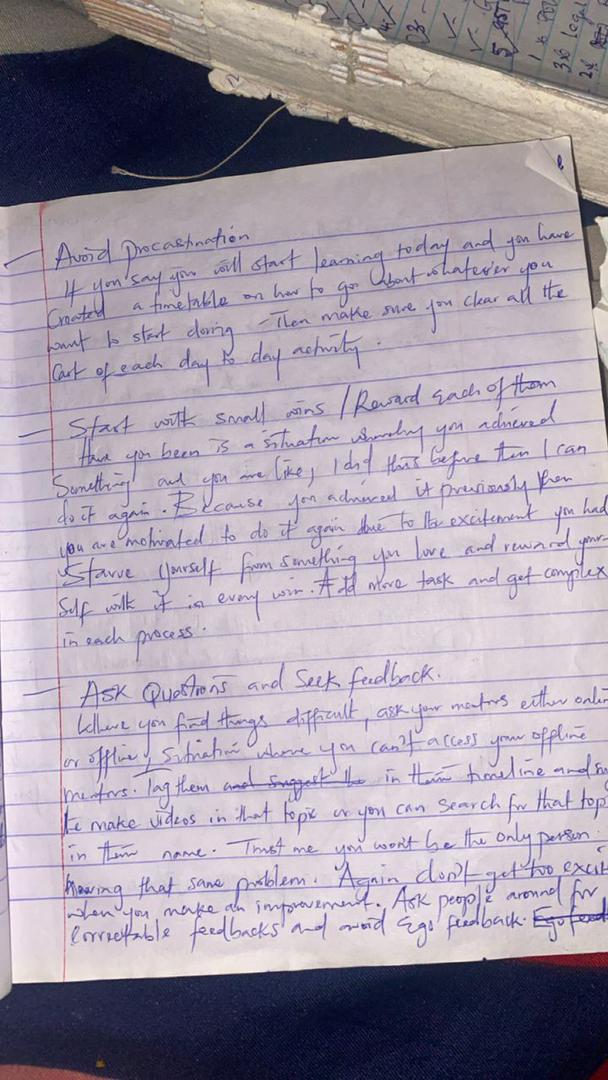 5
1 x
3x8 legal
2x
Avoid procastination
If you say you will start learning today and you have
Created a timetable on how to go about whatever you
want to start doing - Then make sure you clear all the
Cart of each day to day activity.
Start with small wins / Reward each of them
Have you been is a situation whereby you achieved
Something and you are like, I did this before then I can
do it again. Because you achieved it previously then
you are motivated to do it again due to the excitement you had
Starve yourself from something you love and reward your-
self with it in every win. Add more task and get complex
in each process.
Ask Questions and Seek feedback.
Where you find things difficult, ask your mentors either online
or offline, Situation where you can't access your offline
mentors. Tag them and suggest the in their timeline and
to make videos in that topic or you can search for that top
in their name. Trust me you won't be the only person
having that same problem. Again don't get too excit
when you make an improvement. Ask people around for
Correctable feedbacks and avoid Ego feedback. Ego feed